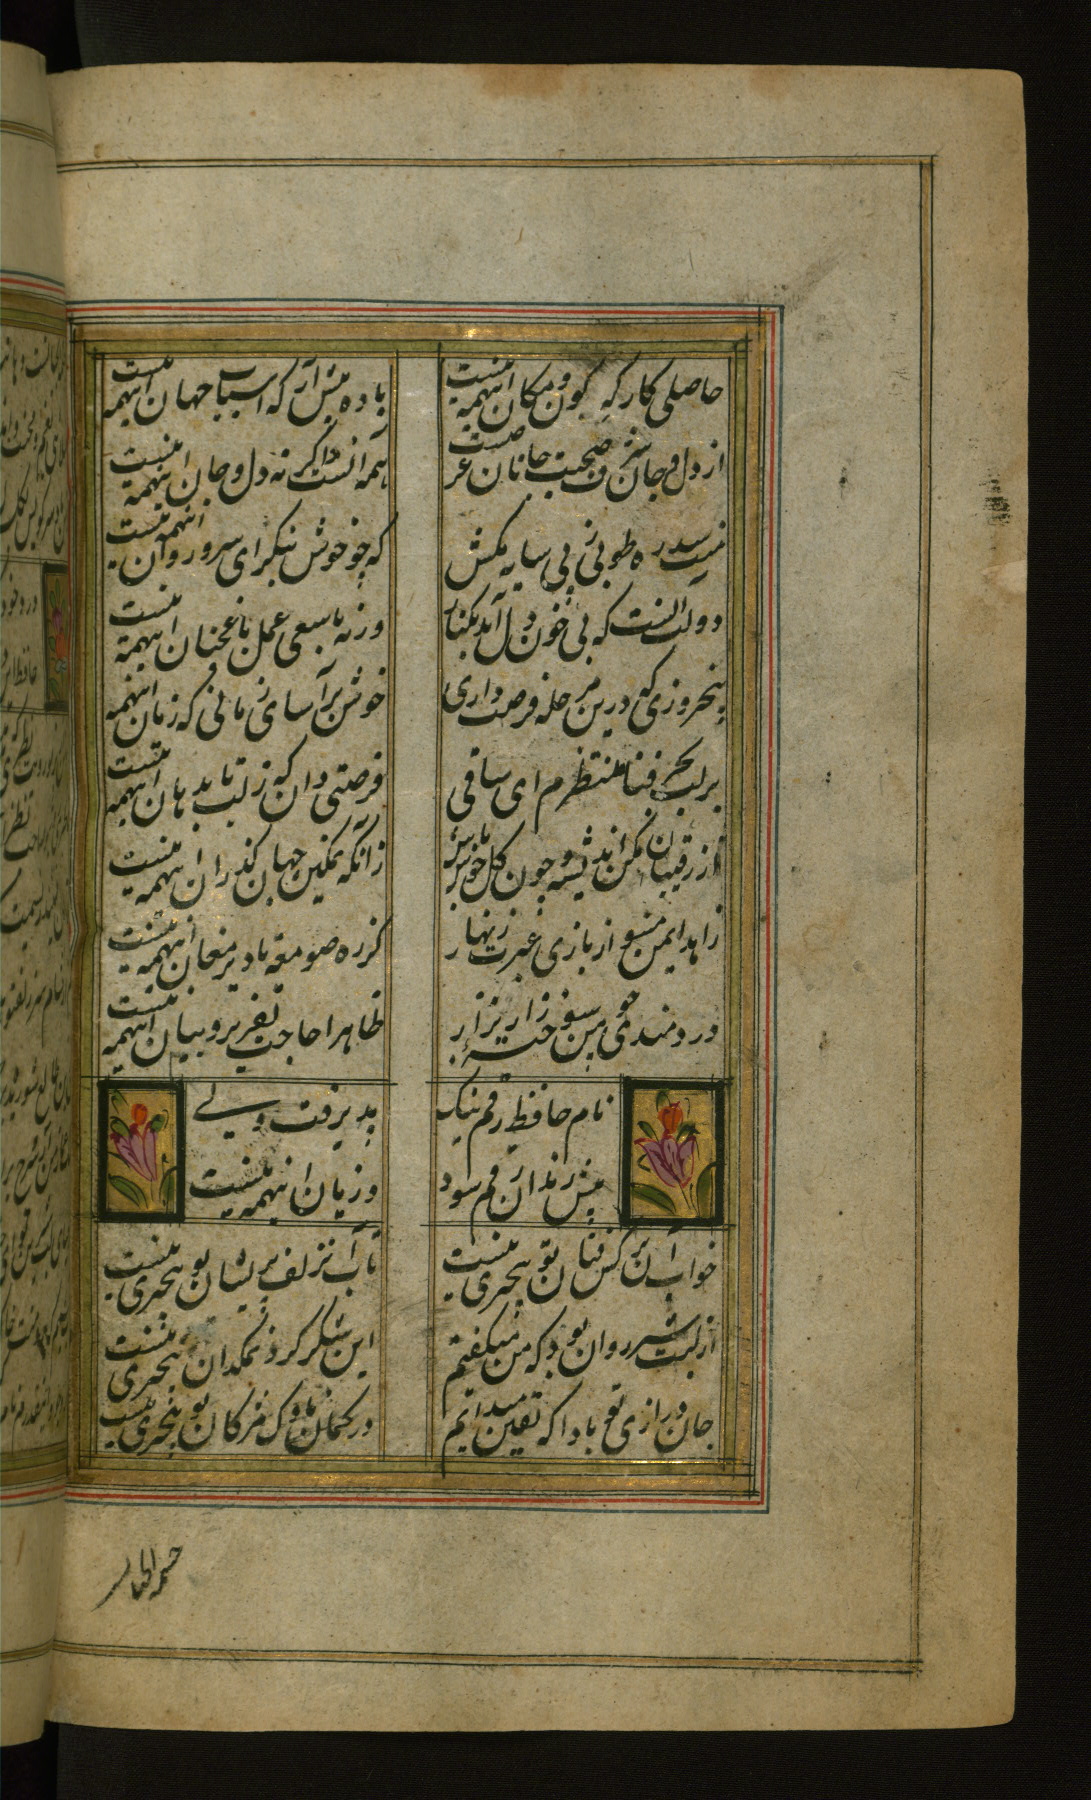 حاصلی کارگه کون و مکان اینهمه نیست
باده پیش آر که اسباب جهان اینهمه نیست
از دل و جان شرف صحبت جانان غرضست
همه آنست اگر نه دل و جان اینهمه نیست
منت سدره و طوبی ز پی سایه مکش
که چو خوش بنگری ای سرو روان اینهمه نیست
دولت آنست که بی خون دل آید بکنار
ورنه با سعی عمل باغ جنان اینهمه نیست
پنجروزی که درین مرحله فرصت داری
خوش بر آسای زمانی که زمان اینهمه
بر لب بحر فنا منتظرم ای ساقی
فرصتی دان که ز لب تا بدهان اینهمه نیست
از رقیبان مکن اندیشه و چون گل خوش باش
زانکه تمکین جهان گذران اینهمه نیست
زاهد ایمن مشو از بازی غیرت زنهار
که ره صومعه تا دیر مغان اینهمه نیست
دردمندی چو من سوخته زار نزار
ظاهرا حاجت تقریر و بیان اینهمه نیست
نام حافظ رقم نیک
پذیرفت ولی
پیش رندان رقم سود
و زیان اینهمه نیست
خواب آن نرگس فتان تو بیچیزی نیست
تاب آن زلف پریشان تو بیچیزی نیست
از لبت شیر روان بود که من میگفتم
این شکر گرد نمکدان تو بیچیزی نیست
جان درازی تو بادا که یقین میدانم
در کمان ناوک مژگان تو بیچیزی نیست